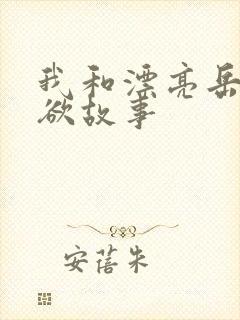 我和漂亮岳
欲故事
安蓓朱